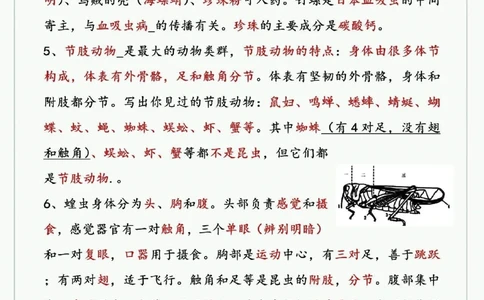 明)、乌贼的壳(海螵蛸)、珍珠粉可入药。钉螺是日本血吸虫的中间
寄主，与血吸虫病_的传播有关。珍珠的主要成分是碳酸钙。
5、节肢动物_是最大的动物类群，节肢动物的特点：身体由很多体节
构成，体表有外骨骼，足和触角分节。体表有坚韧的外骨骼，身体和
附肢都分节。写出你见过的节肢动物：鼠妇、鸣蝉、蟋蟀、蜻蜓、蝴
蝶、蚊、蝇、蜘蛛、蜈蚣、虾、蟹等。其中蜘蛛（有4对足，没有翅
和触角）、蜈蚣、虾、蟹等都不是昆虫，但它们都
是节肢动物.。
一 二 三
6、蝗虫身体分为头、胸和腹。头部负责感觉和摄
食，感觉器官有一对触角，三个单眼（辨别明暗）
和一对复眼，口器用于摄食。胸部是运动中心，有三对足，善于跳跃
；有两对翅，适于飞行。触角和足等是昆虫的附肢，分节。腹部集中